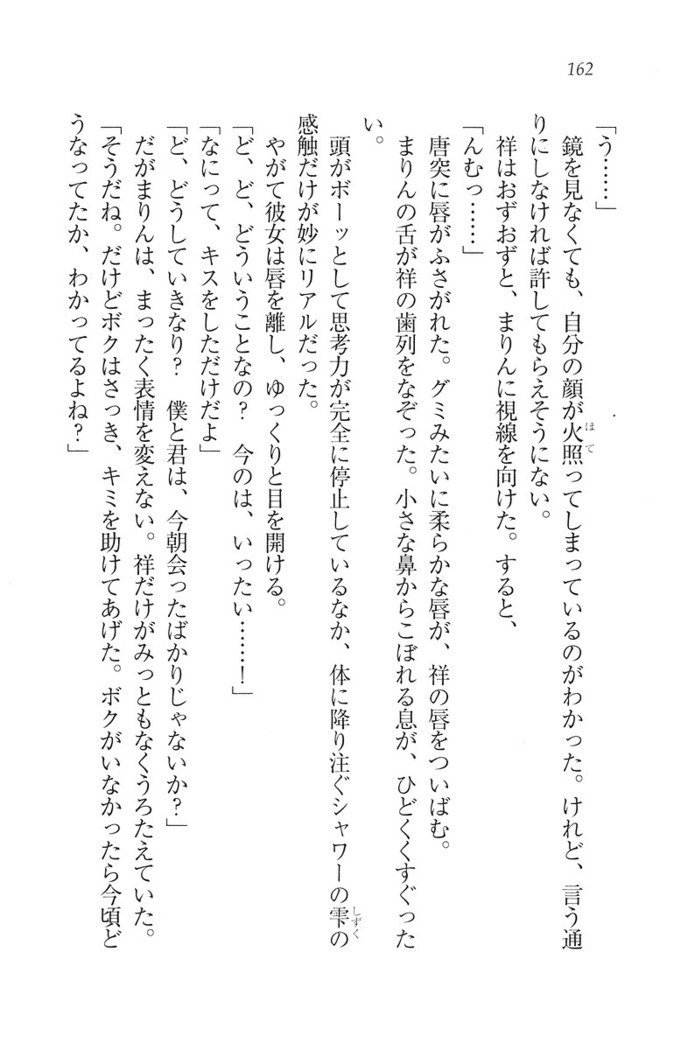 162
「う……」
鏡を見なくても、自分の顔が火照ってしまっているのがわかった。けれど、言う通
ほて
りにしなければ許してもらえそうにない。
祥はおずおずと、まりんに視線を向けた。すると、
「んむっ……」
唐突に唇がふさがれた。グミみたいに柔らかな唇が、祥の唇をついばむ。
まりんの舌が祥の歯列をなぞった。小さな鼻からこぼれる息が、ひどくくすぐった
い。
頭がボーッとして思考力が完全に停止しているなか、体に降り注ぐシャワーの雫の
しずく
感触だけが妙にリアルだった。
やがて彼女は唇を離し、ゆっくりと目を開ける。
「ど、ど、どういうことなの？　今のは、いったい……！」
「なにって、キスをしただけだよ」
「ど、どうしていきなり？　僕と君は、今朝会ったばかりじゃないか？」
だがまりんは、まったく表情を変えない。祥だけがみっともなくうろたえていた。
「そうだね。だけどボクはさっき、キミを助けてあげた。ボクがいなかったら今頃ど
うなってたか、わかってるよね？」